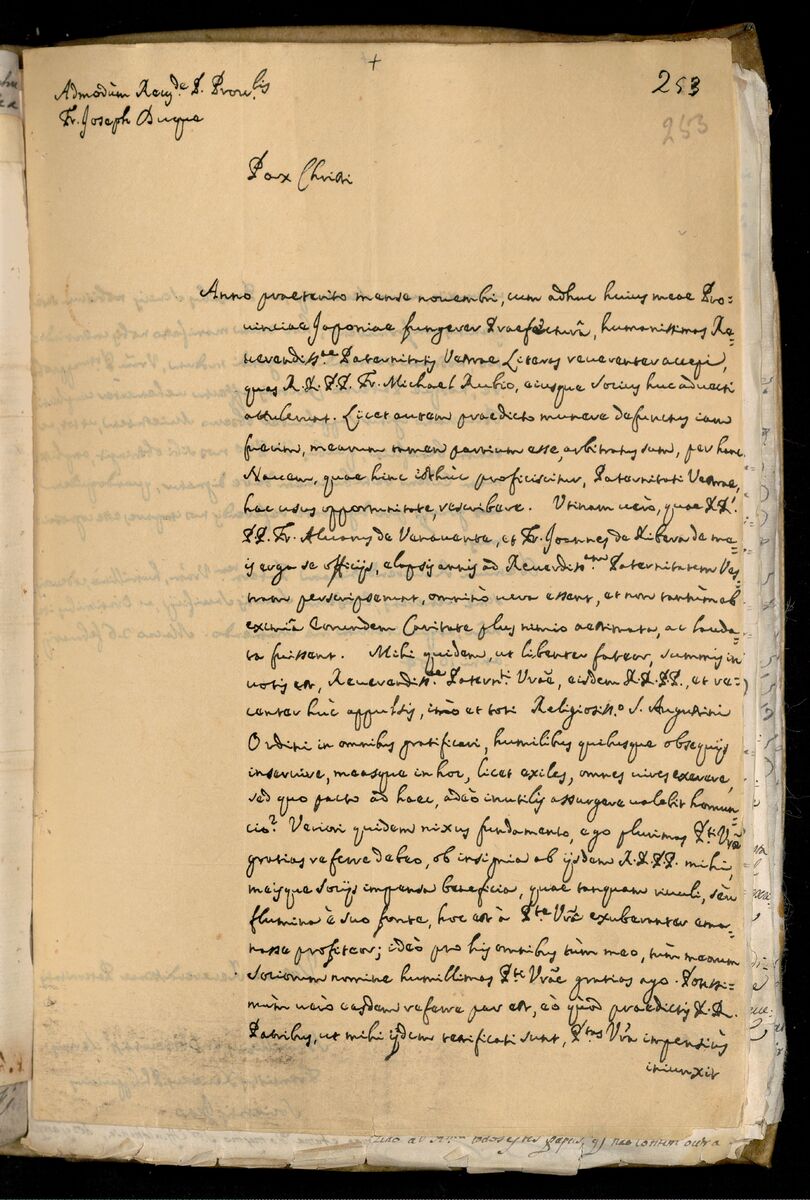 +
253
Admodùm Reu.de P. Prou.lis
Fr. Joseph Duque
253
Pax Christi
Anno praeterito mense nouembri, cum adhuc huius meae Pro-
uinciae Japoniae fungerer Praefecturâ, humanissimas Re-
uerendiss.ae Paternitatis Vestrae Literas reuerenter accepi,
quas R.R.P.P. Fr. Michael Rubio, eiusque Socius huc aduecti
attulerunt. Licet autem praedicto munere defunctus iam
fuerim, mearum tamen partium esse, arbitratus sum, per hanc
Nauem, quae hinc isthùc proficiscitur, Paternitati Vestrae,
hac usus opportunitate, rescribere. Utinam uerò, quae RR.
PP. Fr. Aluarus de Benauente, et Fr. Joannes de Ribera de me-
is erga se officijs, elapsis annis ad Reuerendiss.am Paternitatem Ves-
tram perscripserunt, omninò uera essent, et non tantùm ab
eximiâ eorundem Caritate plus nimio aestimata, ac lauda-
ta fuissent. Mihi quidem, ut libenter fateor, summis in
uotis est, Reuerendiss.ae Patern.ti Vrae, eisdem R.R.P.P., et re-
center hùc appulsis, imò et toti Religiosiss.o S. Augustini
Ordini in omnibus gratificari, humilibus quibusque obsequijs
inseruire, measque in hoc, licet exiles, omnes uires exerere,
sed quo pacto ad haec, adeò inutilis assurgere ualebit homun-
cio? Veriori quidem nixus fundamento, ego plurimas P.ti Vrae
gratias referre debeo, ob insignia ab ijsdem R.R.P.P. mihi,
meisque Socijs impensa beneficia, quae tanquam riuuli, seu
flumina è suo fonte, hoc est à P.te Vrâ exuberanter ema-
nasse profiteor; ideò pro his omnibus tùm meo, tùm meorum
Sociorum nomine humillimas P.ti Vrae gratias ago. Potissi-
mùm uerò easdem referre par est, eò quòd praedictis R.R.
Patribus, ut mihi ijdem testificati sunt, P.tas Vra impensiùs
iniunxit